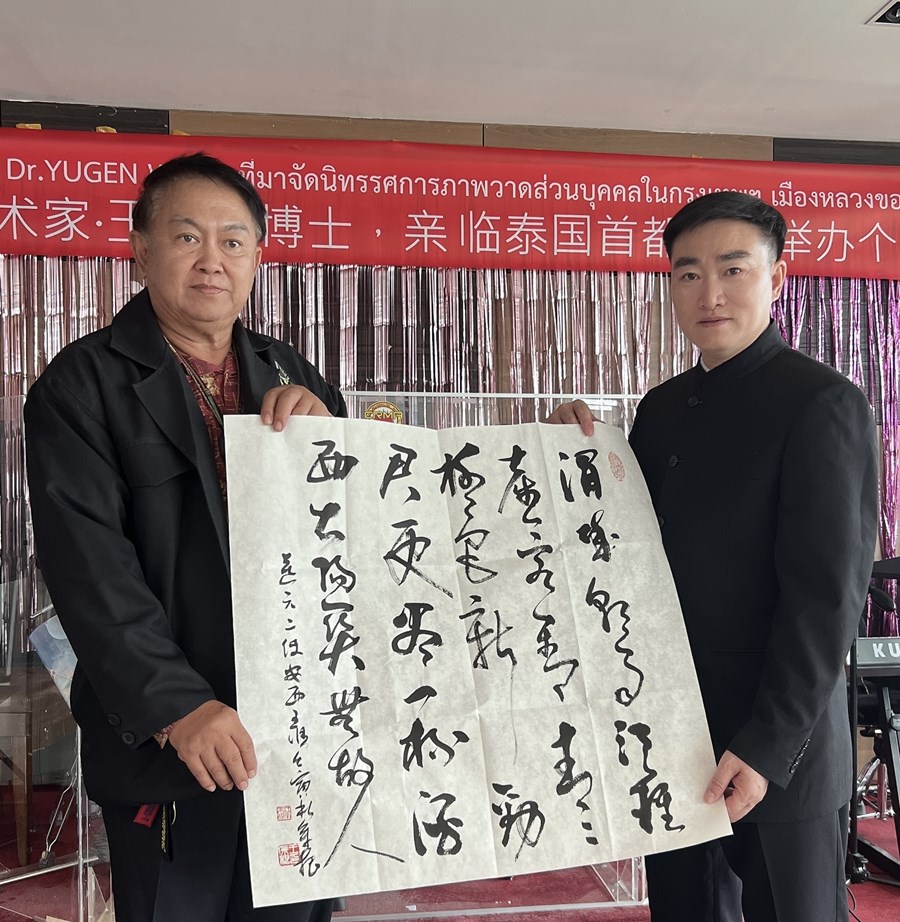 Dr.YUGEN ที่มาจัดนิทรรศการภาพวาดส่วนบุคคลในกรุงเทพฯ เมืองหลวงขอ
术家·王 博士，亲临泰国首都 举办个
渭城朝雨浥轻
尘客舍青青
柳色新劝
君更尽一杯酒
西出阳关无故人
送元二使安西
KU